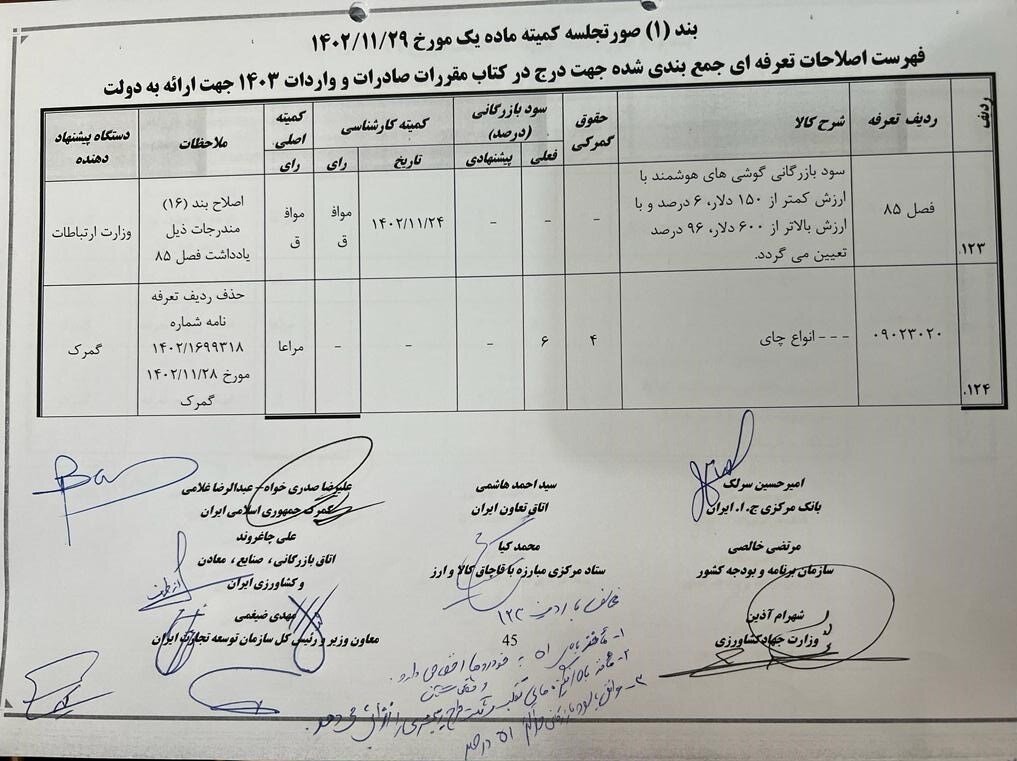 بند (۱) صورتجلسه کمیته ماده یک مورخ ۱۴۰۲/۱۱/۲۹
فهرست اصلاحات تعرفه ای جمع بندی شده جهت درج در کتاب مقررات صادرات و واردات ۱۴۰۳ جهت ارائه به دولت
ردیف
ردیف تعرفه
شرح کالا
حقوق گمرکی
سود بازرگانی (درصد)
فعلی
پیشنهادی
کمیته کارشناسی
تاریخ
رای
کمیته اصلی
رای
ملاحظات
دستگاه پیشنهاد دهنده
۱۲۳.
فصل ۸۵
سود بازرگانی گوشی های هوشمند با
ارزش کمتر از ۱۵۰ دلار، ۶ درصد و با
ارزش بالاتر از ۶۰۰ دلار، ۹۶ درصد
تعیین می گردد.
-
-
-
۱۴۰۲/۱۱/۲۴
مواف
ق
مواف
ق
اصلاح بند (۱۶)
مندرجات ذیل
یادداشت فصل ۸۵
وزارت ارتباطات
۱۲۴.
۰۹۰۲۳۰۲۰
- - - انواع چای
۴
۶
-
-
-
مراعا
حذف ردیف تعرفه
نامه شماره
۱۴۰۲/۱۶۹۹۳۱۸
مورخ ۱۴۰۲/۱۱/۲۸
گمرک
گمرک
امیرحسین سرلک
بانک مرکزی ج.ا. ایران
سید احمد هاشمی
اتاق تعاون ایران
علیرضا صدری خواه- عبدالرضا غلامی
گمرک جمهوری اسلامی ایران
مرتضی خالصی
سازمان برنامه و بودجه کشور
محمد کیا
ستاد مرکزی مبارزه با قاچاق کالا و ارز
علی چاغروند
اتاق بازرگانی ، صنایع ، معادن
و کشاورزی ایران
شهرام آذین
وزارت جهادکشاورزی
مهدی ضیغمی
معاون وزیر و رئیس کل سازمان توسعه تجارت ایران
45
مخالف با ردیف ۱۲۳